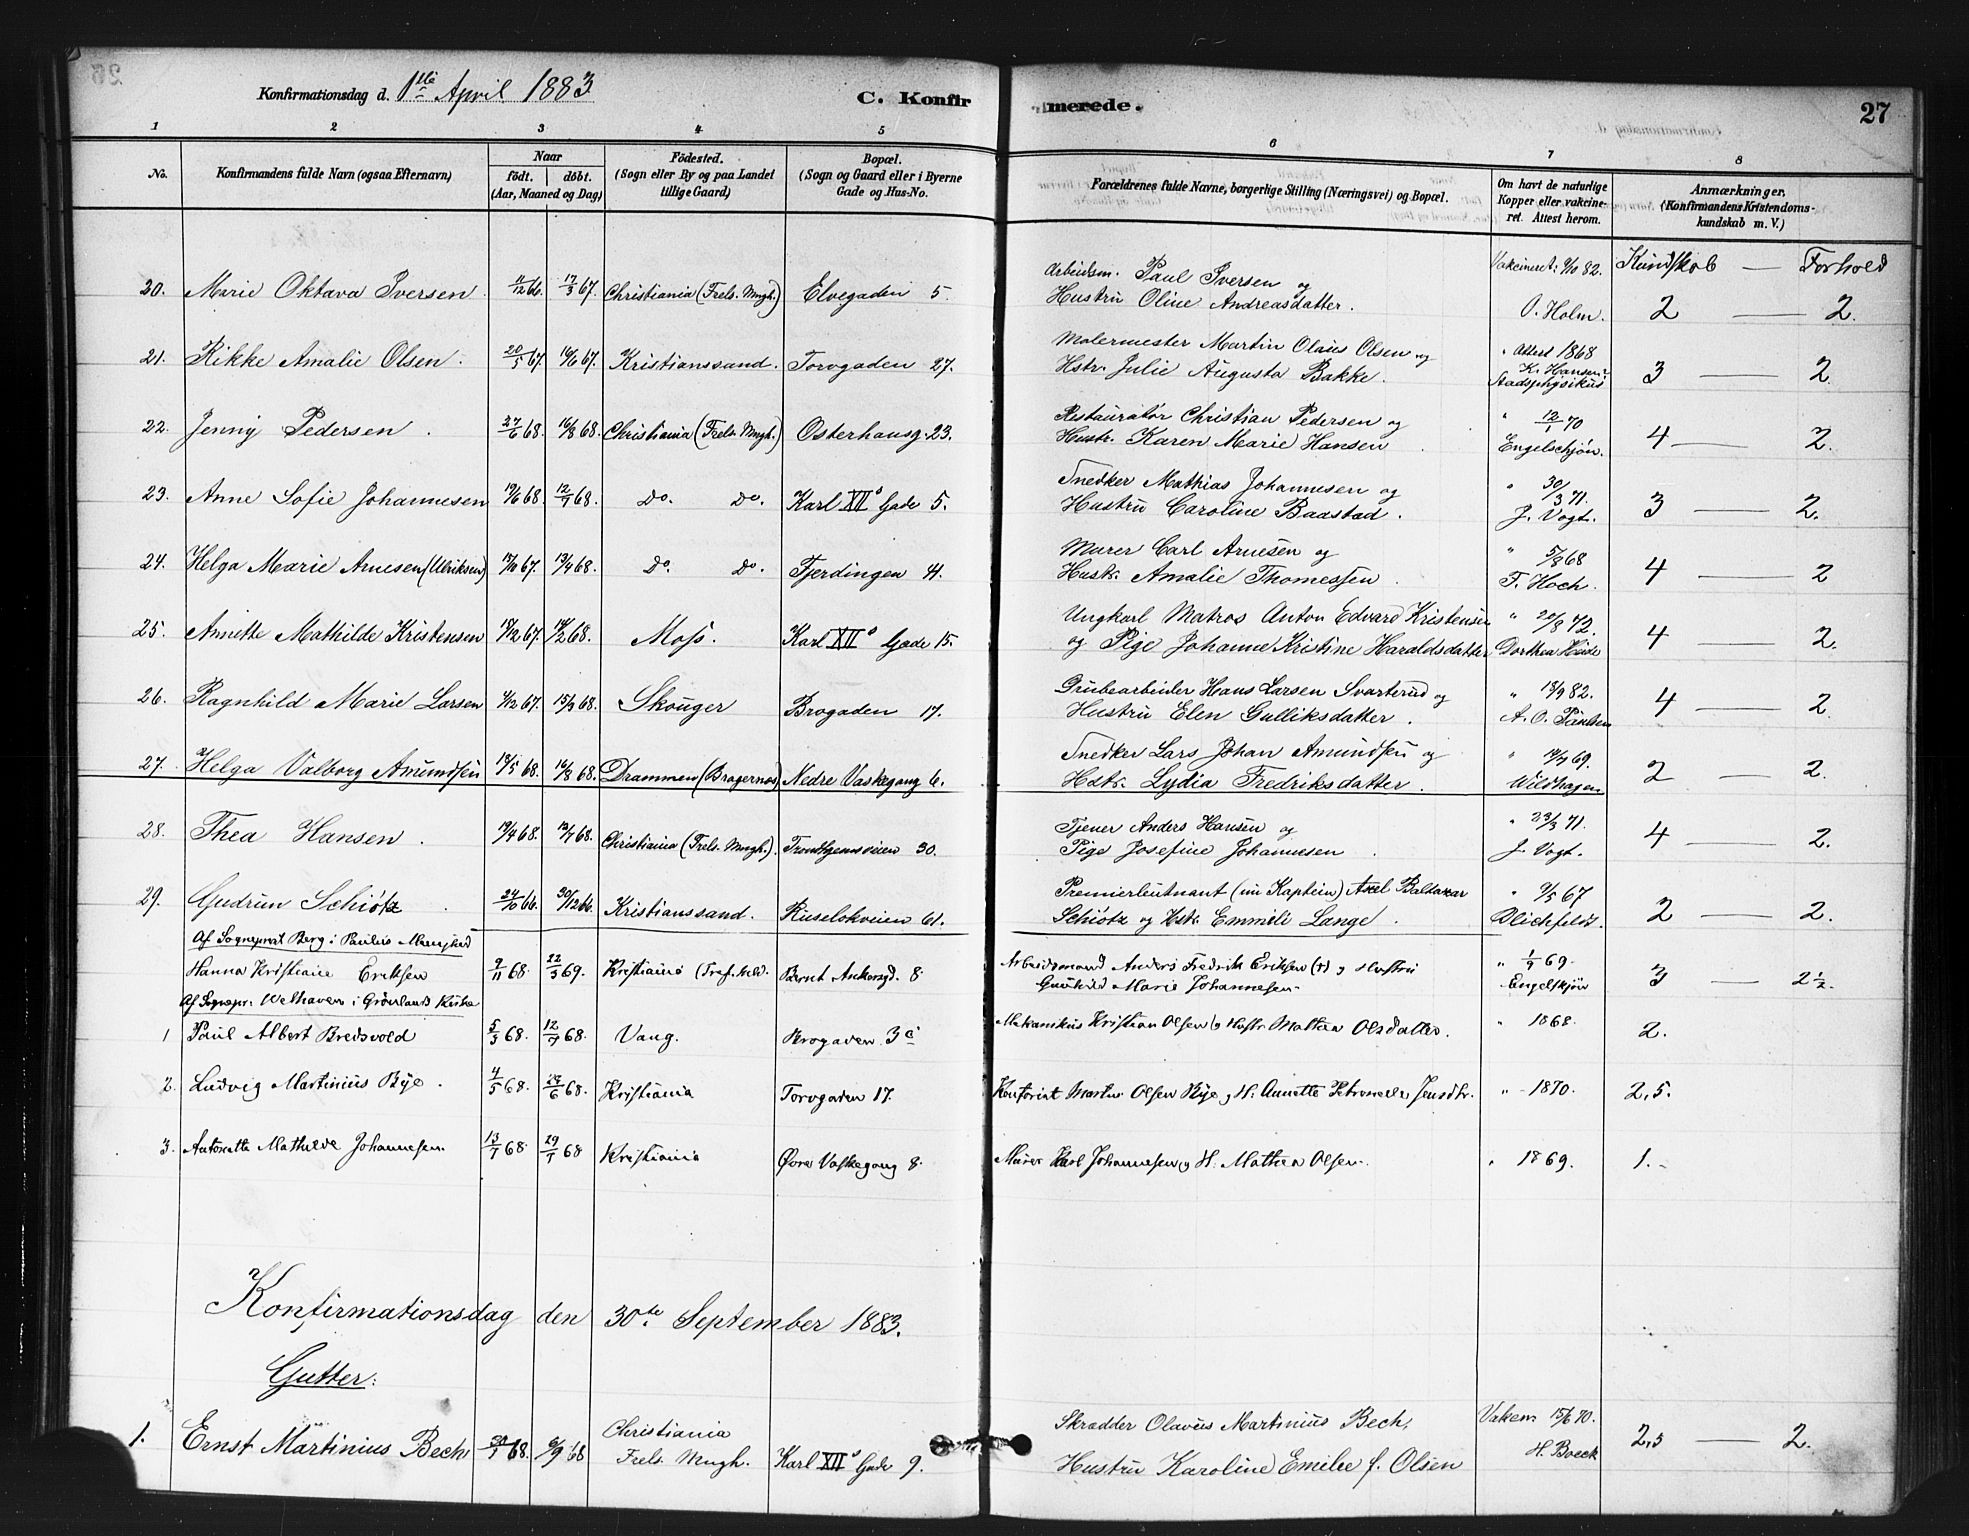 Konfirmationsdag d. 1ste April 1883.
C. Konfirmerede.
27
1 2 3 4 5 6 7 8
No.
Konfirmandens fulde Navn (ogsaa Efternavn)
Naar
født. døbt.
(Aar, Maaned og Dag)
Födested.
(Sogn eller By og paa Landet
tillige Gaard)
Bopæl.
(Sogn og Gaard eller i Byerne
Gade og Hus-No.
Forældrenes fulde Navne, borgerlige Stilling (Næringsvei) og Bopæl.
Om havt de naturlige
Kopper eller vakcine-
ret. Attest herom.
Anmærkninger.
(Konfirmandens Kristendoms-
kundskab m. V.)
Kundskab — Forhold
20. Marie Oktava Iversen 11/12 66. 17/3 67. Christiania (Frels. Mngh.) Elvegaden 5. Arbeidsm. Paul Iversen og Vakcineret: 9/10 82.
Hustru Oline Andreasdatter. O. Holm. 2 — 2.
21. Rikke Amalie Olsen. 20/5 67. 16/6 67. Kristianssand. Torvgaden 27. Malermester Martin Olaus Olsen og " Attest 1868
Hstr. Julie Augusta Bakke. K. Hansen Stadsphysikus 3 — 2.
22. Jenny Pedersen. 27/6 68. 16/8 68. Christiania (Frels. Mngh.) Osterhausg. 23. Restauratør Christian Pedersen og " 12/1 70
Hustr. Karen Marie Hansen Engelschjøn. 4 — 2.
23. Anne Sofie Johannesen 19/6 68. 12/9 68. Do. Do. Karl XIIs Gade 5. Snedker Mathias Johannesen og " 30/3 71.
Hustru Caroline Baastad. J. Vogt. 3 — 2.
24. Helga Marie Arnesen (Ulriksen) 17/10 67. 13/4 68. Do. Do. Fjerdingen 4. Murer Carl Arnesen og " 5/8 68
Hustr. Amalie Thomessen. F. Hoch. 4 — 2
25. Annette Mathilde Kristensen 18/12 67. 14/2 68. Moss. Karl XIIs Gade 15. Ungkarl Matros Anton Edvard Kristensen " 20/8 72.
og Pige Johanne Kristine Haraldsdatter Dorthea Heide 4 — 2.
26. Ragnhild Marie Larsen 4/12 67. 15/3 68. Skouger Brogaden 17. Grubearbeider Hans Larsen Svarterud og " 13/9 82.
Hustru Elen Gulliksdatter. A. O. Paulsen 4 — 2.
27. Helga Valborg Amundsen 19/5 68. 16/8 68. Drammen (Bragernes) Nedre Vaskegang 6. Snedker Lars Johan Amundsen og " 14/7 69.
Hstr. Lydia Fredriksdatter. Wildhagen 2 — 2.
28. Thea Hansen. 19/4 68. 13/7 68. Christiania (Frels. Mngh.). Trondhjemsveien 30. Tjener Anders Hansen og " 23/3 71.
Pige Josefine Johannesen. J. Vogt. 4 — 2.
29. Gudrun Schiøtz. 24/10 66. 30/12 66. Kristianssand. Ruselökveien 61. Premierleutnant (nu Kaptein) Axel Baltazar " 9/5 67
Schiøtz og Hstr. Emmeli Lange. 2 — 2.
Af Sogneprest Berg i Paulus Menighed
Hanna Kristiane Eriksen 9/11 68. 22/3 69. Kristiania (Tref. Mld. Bernt Ankersgd. 8 Arbeidsmand Anders Fredrik Eriksen (†) og Hustru " 1/9 69.
Gunhild Marie Johannesen. Engelskjøn 3 — 2½.
Af Sognepr. Welhaven i Grønlands Kirke
1 Paul Albert Bredsvold 5/3 68. 12/7 68. Vang. Brogaden 3c Mekanikus Kristian Olsen og Hustr. Mathea Olsdatter. " 1868. 2.
2. Ludvig Martinius Bye. 4/5 68. 28/6 68. Kristiania Torvgaden 17. Kontorist Martin Olsen Bye og H. Annette Petronelle Jensdtr. " 1870. 2,5.
3. Antonette Mathilde Johannesen. 13/7 68. 29/ 68 Kristiania Øvre Vaskegang 8. Murer Karl Johannesen og H. Mathea Olsen. " 1869. 1.
Konfirmationsdag den 30te September 1883.
Gutter:
1. Ernst Martinius Bech 30/7 68. 6/9 68 Christiania
Frels. Mngh. Karl XIIs Gade 9. Skrædder Olavus Martinius Bech, Vakcin. 15/6 70.
Hustru Karoline Emilie f. Olsen H. Boeck 2,5 — 2.